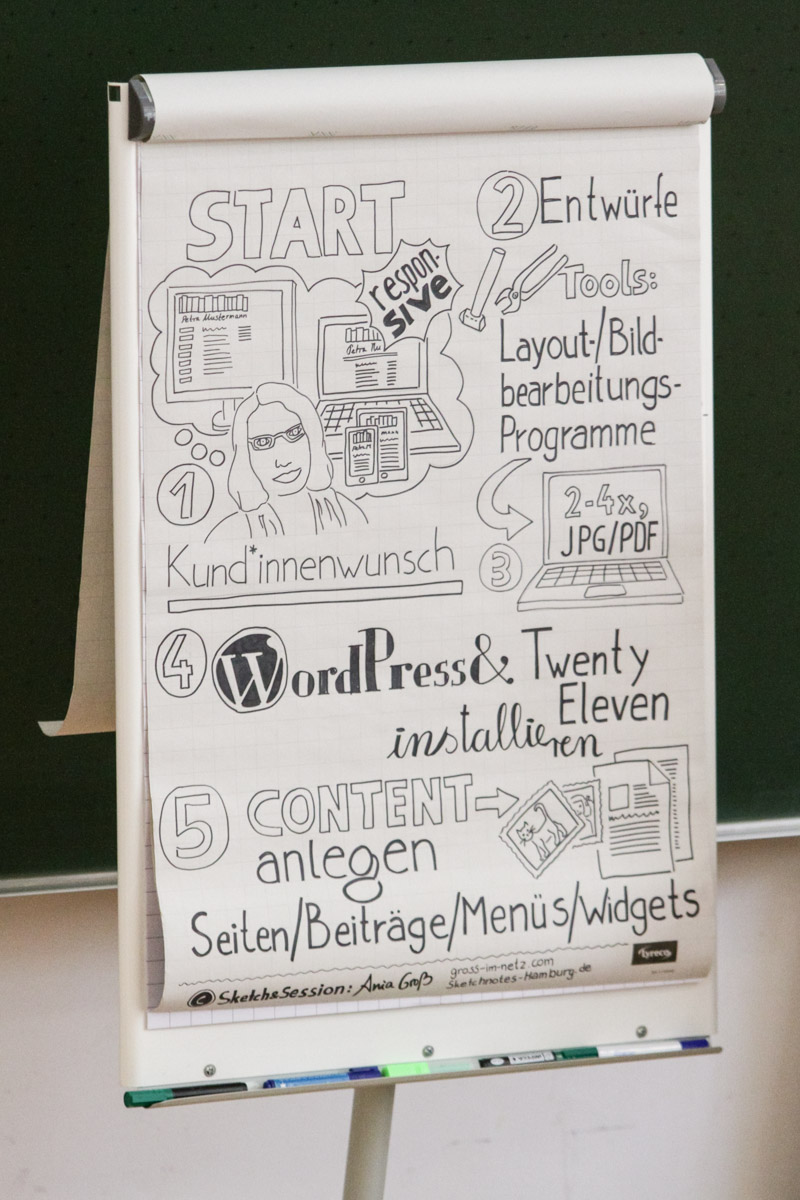 START
respon-
sive
Petra Mustermann
Petra Mu
Petra M
1
Kund*innenwunsch
2 Entwürfe
Tools:
Layout-/Bild-
bearbeitungs-
Programme
3
2-4x,
JPG/PDF
4 WordPress & Twenty
Eleven
installieren
5 CONTENT
anlegen
Seiten/Beiträge/Menüs/Widgets
© Sketch&Session: Ania Groß
gross-im-netz.com
Sketchnotes-Hamburg.de
Lyreco